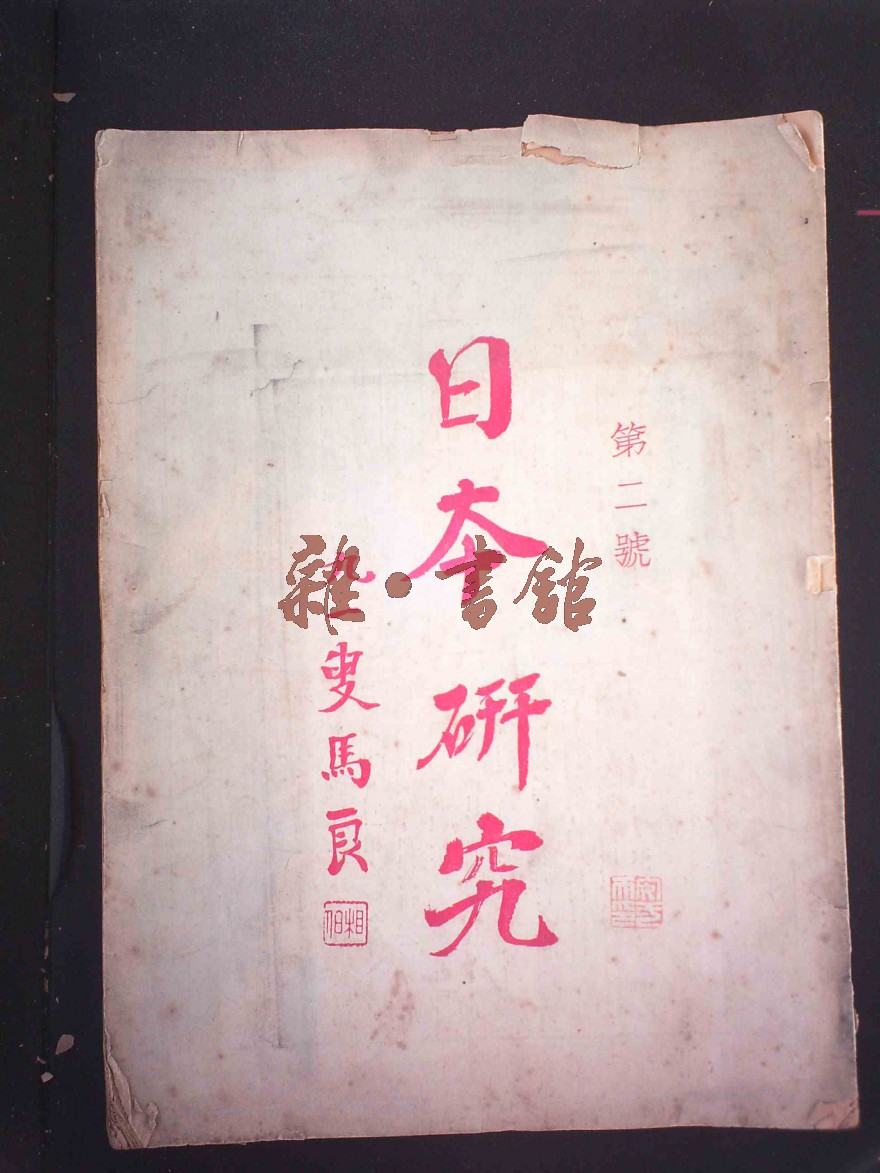 第二號
日夲研究
九一叟馬良
相伯
雜·書館